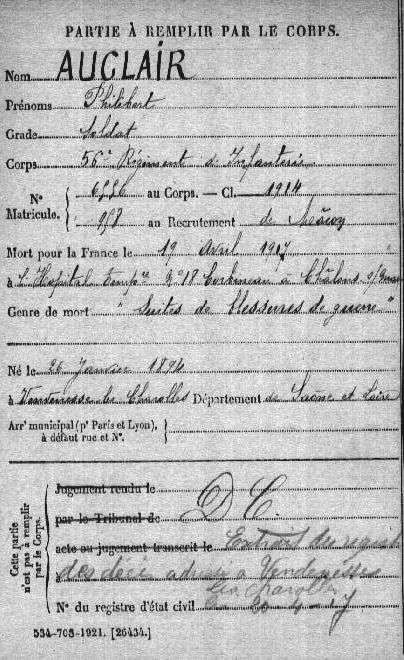 PARTIE À REMPLIR PAR LE CORPS.
Nom AUCLAIR
Prénoms Philibert
Grade Soldat
Corps 56e Régiment d'Infanterie
N° Matricule. { au Corps. — Cl. 1914
au Recrutement de Mâcon
Mort pour la France le 19 Avril 1917
à l'Hôpital tempre N°18 Corbineau à Châlons s/
Genre de mort " Suites de blessures de guerre "
Né le 26 Janvier 1894
à Vendenesse les Charolles Département de Saône et Loire
Arrt municipal (pr Paris et Lyon), à défaut rue et N°. }
Cette partie n'est pas à remplir par le Corps. {
Jugement rendu le
par le Tribunal de D C
acte ou jugement transcrit le Extrait des
des décè à Vendenesse
les Charolles
N° du registre d'état civil
534-708-1921. [26434.]